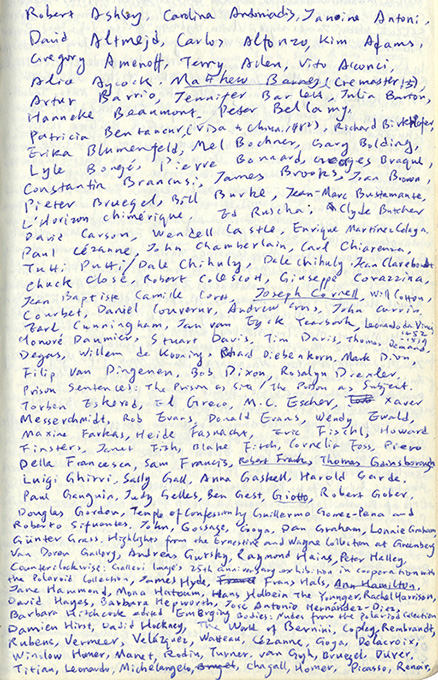 Robert Ashley, Carolina Antoniadis, Janine Antoni,
David Altmejd, Carlos Alfonzo, Kim Adams,
Gregory Amenoff, Terry Allen, Vito Acconci,
Alice Aycock. Matthew Barney (Cremaster
Artur Barrio, Jennifer Bartlett, Julia Barron,
Hanneke Beaumont, Peter Bellamy,
Patricia Bentancur (Visa a China, Richard
Erika Blumenfeld, Mel Bochner, Gary Bolding,
Lyle Bongé, Pierre Bonnard, Georges Braque,
Constantin Brancusi, James Brooks, Joan Brown,
Pieter Bruegel, Bill Burke, Jean-Marc Bustamante,
L'Horizon chimérique. Ed Ruscha; Clyde Butcher
David Carson, Wendell Castle, Enrique Martinez Celaya.
Paul Cézanne, John Chamberlain, Carl Chiarenza,
Tutti Putti/Dale Chihuly, Dale Chihuly, Jean Clareboudt
Chuck Close, Robert Colescott, Giuseppe Corazzina,
Jean Baptiste Camille Corot, Joseph Cornell, Will Cotton,
Courbet, Daniel Couvreur, Andrew John Currin
Earl Cunningham, Jan van Eyck Yearbook, Leonardo da Vinci
1452
1519
Honoré Daumier, Stuart Davis, Tim Davis, Thomas Demand,
Degas, Willem de Kooning, Richard Diebenkorn, Mark Dion,
Filip Van Dingenen, Bob Dixon, Rosalyn Drexler,
Prison Sentences: The Prison as Site/The Prison as Subject.
Torben Eskerod, El Greco, M.C. Escher, Xaver
Messerschmidt, Rob Evans, Donald Evans, Wendy Ewald,
Maxine Farkas, Heide Fasnacht, Eric Fischl, Howard
Finsters, Janet Fish, Blake Fitch, Cornelia Foss, Piero
Della Francesca, Sam Francis, Robert Frank, Thomas Gainsborough
Luigi Ghirri, Sally Gall, Anna Gaskell, Harold Garde.
Paul Gauguin, Judy Gelles, Ben Gest, Giotto, Robert Gober,
Douglas Gordon, Temple of Confessions by Guillermo Gomez-Pena and
Roberto Sifuentes. John, Gossage, Goya, Dan Graham, Lonnie Graham,
Günter Grass. Highlights from the Ernestine and Wayne Collection at Greenberg
Van Doren Gallery, Andreas Gursky, Raymond Hains, Peter Halley.
Counterclockwise: Galleri Image's 25th anniversary exhibition in cooperation with
the Polaroid Collection, James Hyde, Frans Hals, Ann Hamilton,
Jane Hammond, Mona Hatoum, Hans Holbein The Younger, Rachel Harrison,
David Hayes, Barbara Hepworth, José Antonio Hernández-Diez,
Barbara Hitchcock edited Emerging Bodies: Nudes from the Polaroid Collection
Damien Hirst, David Hockney, The World of Bernini, Copley, Rembrandt,
Rubens, Vermeer, Velázquez, Watteau, Cézanne, Goya, Delacroix,
Winslow Homer, Manet, Rodin, Turner, van Gogh, Bruegel, Dürer,
Titian, Leonardo, Michelangelo, Chagall, Homer, Picasso, Renoir,